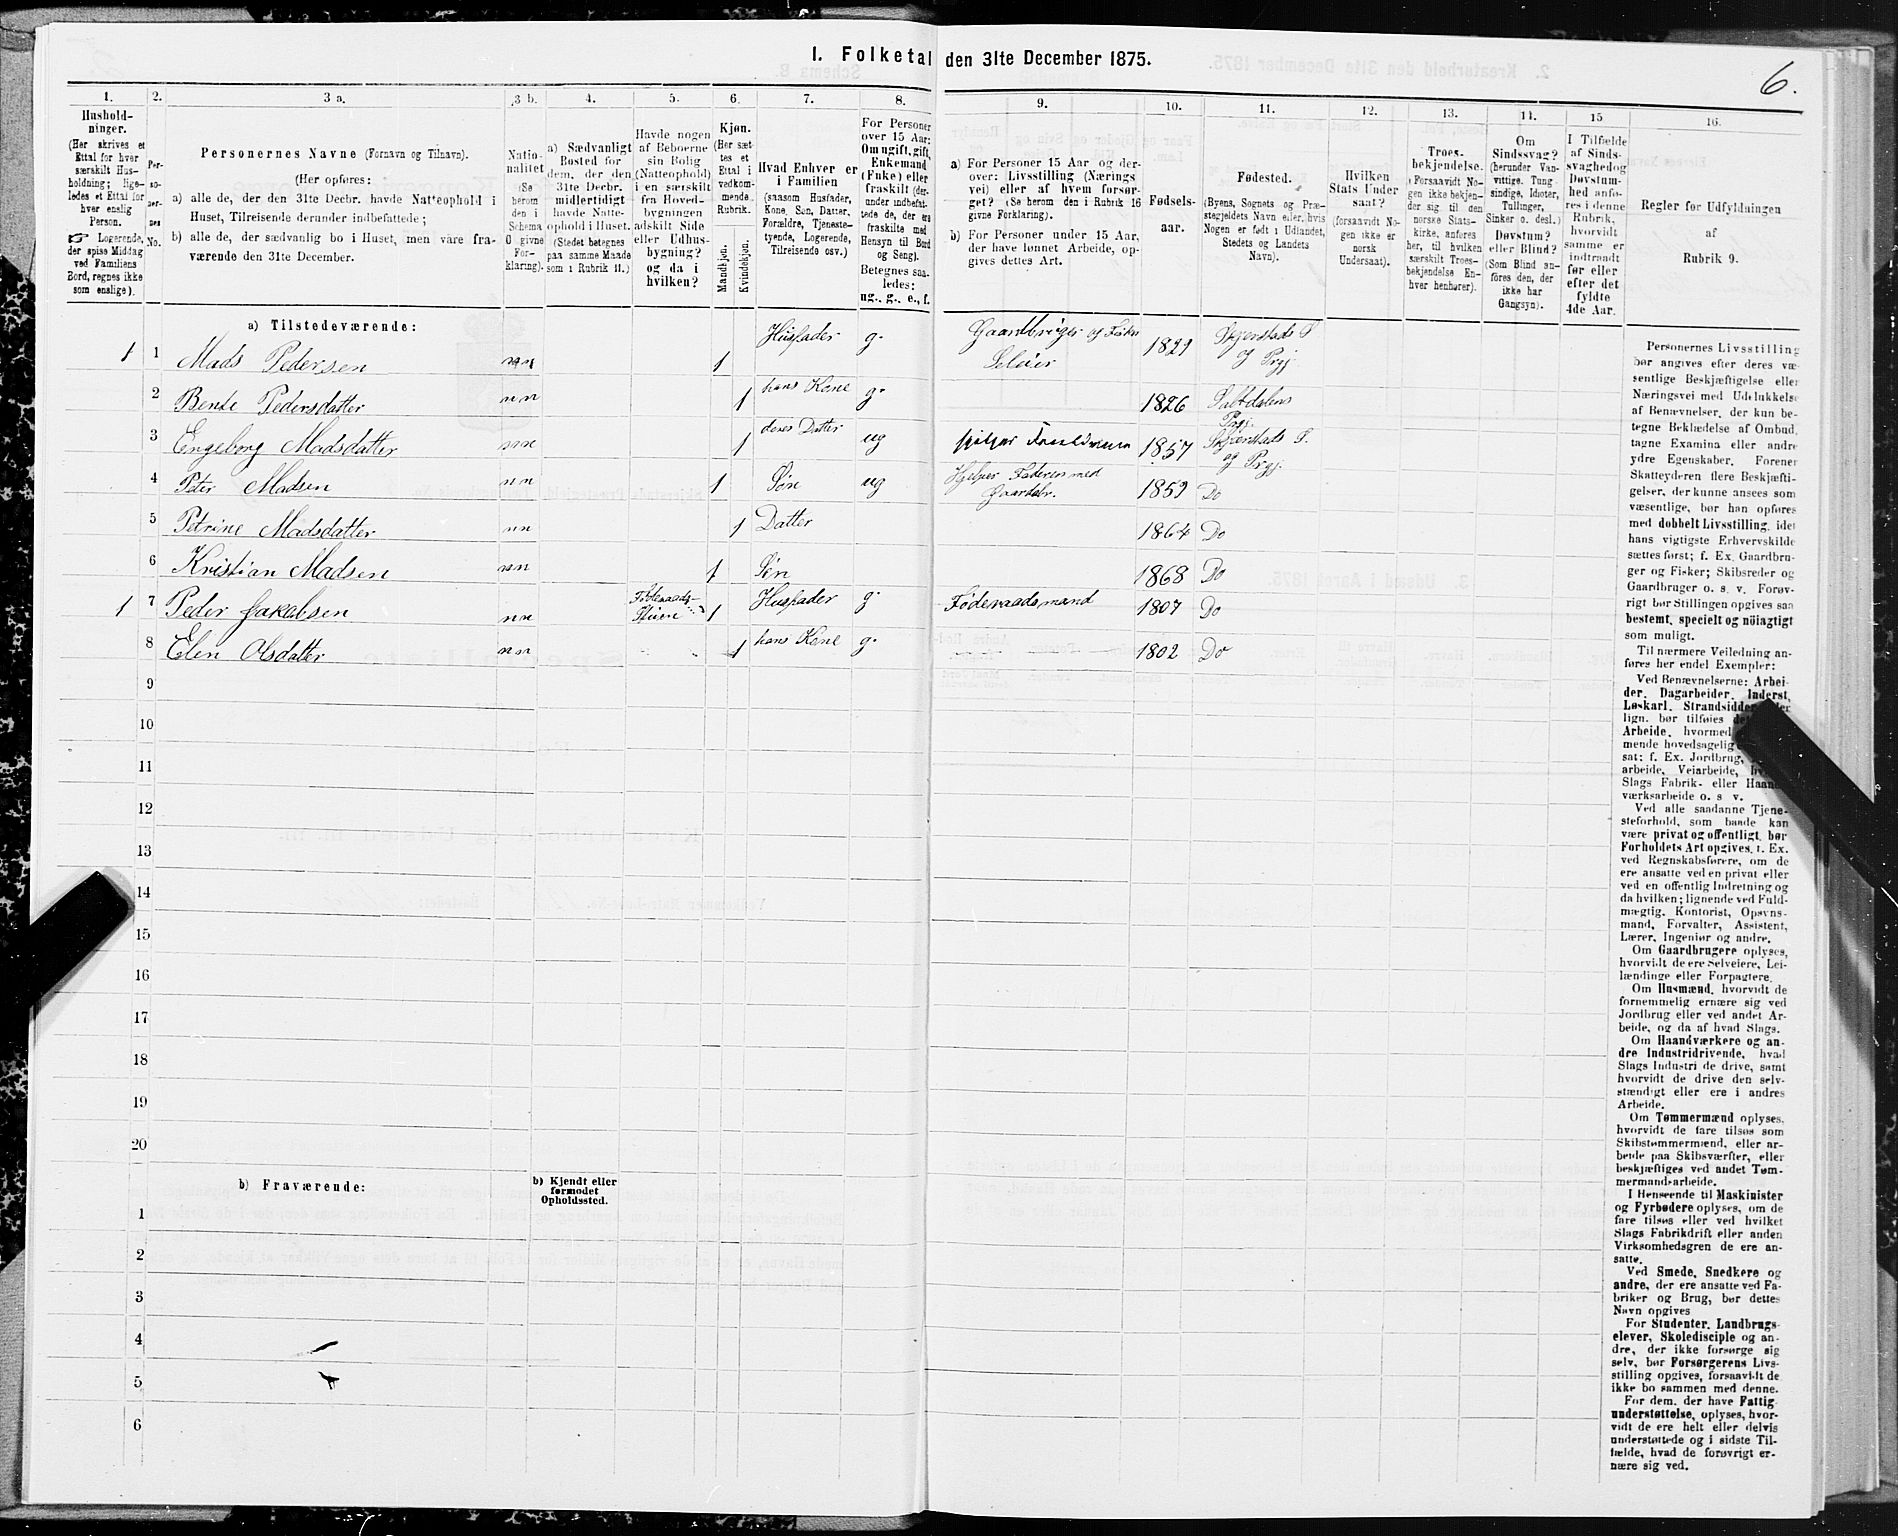 I. Folketal den 31te December 1875.
6.
1.
Hushold-
ninger.
(Her skrives et
Ettal for hver
særskilt Hus-
holdning; lige-
ledes et Ettal for
hver enslig
Person.
Logerende,
der spise Middag
ved Familiens
Bord, regnes ikke
som enslige).
2.
Per-
so-
ner-
nes
No.
3 a.
Personernes Navne (Fornavn og Tilnavn).
(Her opføres:
a) alle de, der den 31te Decbr. havde Natteophold i
Huset, Tilreisende derunder indbefattede;
b) alle de, der sædvanlig bo i Huset, men vare fra-
værende den 31te December.
3 b.
Natio-
nalitet
(Se
herom
den i
Schema
O givne
For-
klaring).
4.
a) Sædvanligt
Bosted for
dem, der den
31te Decbr.
midlertidigt
havde Natte-
ophold i Huset.
(Stedet betegnes
paa samme Maade
som i Rubrik 11.)
5.
Havde nogen
af Beboerne
sin Bolig
(Natteophold)
i en særskilt
fra Hoved-
bygningen
adskilt Side
eller Udhus-
bygning?
og da i
hvilken?
6.
Kjøn.
(Her sæt-
tes et
Ettal i
vedkom-
mende
Rubrik.
Mandkjøn.
Kvindekjøn.
7.
Hvad Enhver er
i Familien
(saasom Husfader,
Kone, Søn, Datter,
Forældre, Tjeneste-
tyende, Logerende,
Tilreisende osv.)
8.
For Personer
over 15 Aar:
Om ugift, gift,
Enkemand
(Enke) eller
fraskilt (der-
under indbefat-
tede de, der ere
fraskilte med
Hensyn til Bord
og Seng).
Betegnes saa-
ledes:
ug., g., e., f.
9.
a) For Personer 15 Aar og der-
over: Livsstilling (Nærings
vei) eller af hvem forsør-
get? (Se herom den i Rubrik 16
givne Forklaring).
b) For Personer under 15 Aar,
der have lønnet Arbeide, op-
gives dettes Art.
10.
Fødsels-
aar.
11.
Fødested.
(Byens, Sognets og Præ-
stegjeldets Navn eller, hvis
Nogen er født i Udlandet,
Stedets og Landets
Navn).
12.
Hvilken
Stats Under
saat?
(forsaavidt No-
gen ikke er
norsk
Undersaat).
13.
Troes-
bekjendelse.
(Forsaavidt No-
gen ikke bekjen-
der sig til den
norske Stats-
kirke, anføres
her, til hvilken
særskilt Troes-
bekjendelse En-
hver henhører).
14.
Om
Sindssvag?
(herunder Van-
vittige, Tung-
sindige, Idioter,
Tullinger,
Sinker o. desl.)
Døvstum?
eller Blind?
(Som Blind an-
føres den, der
ikke har
Gangsyn).
15
I Tilfælde
af Sinds-
svaghed og
Døvstum-
hed anfø-
res i denne
Rubrik,
hvorvidt
samme er
indtraadt
før eller
efter det
fyldte
4de Aar.
16.
Regler for Udfyldningen
af
Rubrik 9.
a) Tilstedeværende:
1 1 Mads Pedersen nn 1 Husfader g. Gaardbruger og Fisker Seleier 1829 Skjerstads S. og Prgj.
2 Bente Pedersdatter nn 1 hans Kone g. 1826 Saltdalens Prgj.
3 Engeborg Madsdatter nn 1 deres Datter ug 1857 Skjerstads S. og Prgj.
4 Peter Madsen nn 1 Søn ug Hjelper Faderen med Gaardsbr. 1859 Do
5 Petrine Madsdatter nn 1 Datter 1864 Do
6 Kristian Madsen nn 1 Søn 1868 Do
1 7 Peder Jakobsen nn Føderaads- Stuen 1 Husfader g. Føderaadsmand 1807 Do
8 Elen Olsdatter nn 1 hans Kone g. 1802 Do
9
10
11
12
13
14
15
16
17
18
19
20
b) Fraværende:
b) Kjendt eller
formodet
Opholdssted.
1
2
3
4
5
6
Personernes Livsstilling
bør angives efter deres væ-
sentlige Beskjæftigelse eller
Næringsvei med Udelukkelse
af Benævnelser, der kun be-
tegne Beklædelse af Ombud,
tagne Examina eller andre
ydre Egenskaber. Forener
Skatteyderen flere Beskjæfti-
gelser, der kunne ansees som
væsentlige, bør han opføres
med dobbelt Livsstilling, idet
hans vigtigste Erhvervskilde
sættes først; f. Ex. Gaardbru-
ger og Fisker; Skibsreder og
Gaardbruger o. s. v. Forøv-
rigt bør Stillingen opgives saa
bestemt, specielt og nöiagtigt
som muligt.
Til nærmere Veiledning an-
føres her endel Exempler:
Ved Benævnelserne: Arbei-
der, Dagarbeider, Inderst,
Løskarl, Strandsidder
lign. bør tilføies
Arbeide, hvormed
mende hovedsagelig
sat; f. Ex. Jordbrug,
arbeide, Veiarbeide,
Slags Fabrik- eller Haand-
værksarbeide o. s. v.
Ved alle saadanne Tjene-
steforhold, som baade kan
være privat og offentligt, bør
Forholdets Art opgives, f. Ex.
ved Regnskabsførere, om de
ere ansatte ved en privat eller
ved en offentlig Indretning og
da hvilken; lignende ved Fuld-
mægtig, Kontorist, Opsyns-
mand, Forvalter, Assistent,
Lærer, Ingeniør og andre.
Om Gaardbrugere oplyses,
hvorvidt de ere Selveiere, Lei-
lændinge eller Forpagtere.
Om Husmænd, hvorvidt de
fornemmelig ernære sig ved
Jordbrug eller ved andet Ar-
beide, og da af hvad Slags.
Om Haandværkere og an-
dre Industridrivende, hvad
Slags Industri de drive, samt
hvorvidt de drive den selv-
stændigt eller ere i andres
Arbeide.
Om Tømmermænd oplyses,
hvorvidt de fare tilsøs som
Skibstømmermænd, eller ar-
beide paa Skibsværfter, eller
beskjæftiges ved andet Tøm-
mermandsarbeide.
I Henseende til Maskinister
og Fyrbødere oplyses, om de
fare tilsøs eller ved hvilket
Slags Fabrikdrift eller anden
Virksomhedsgren de ere an-
satte.
Ved Smede, Snedkere og
andre, der ere ansatte ved Fa-
briker og Brug, bør dettes
Navn opgives
For Studenter, Landbrugs-
elever, Skoledisciple og an-
dre, der ikke forsørge sig
selv, bør Forsørgerens Livs-
stilling opgives, forsaavidt de
ikke bo sammen med denne.
For dem, der have Fattig-
understøttelse, oplyses, hvor-
vidt de ere helt eller delvis
understøttede og i sidste Til-
fælde, hvad de forøvrigt er-
nære sig ved.